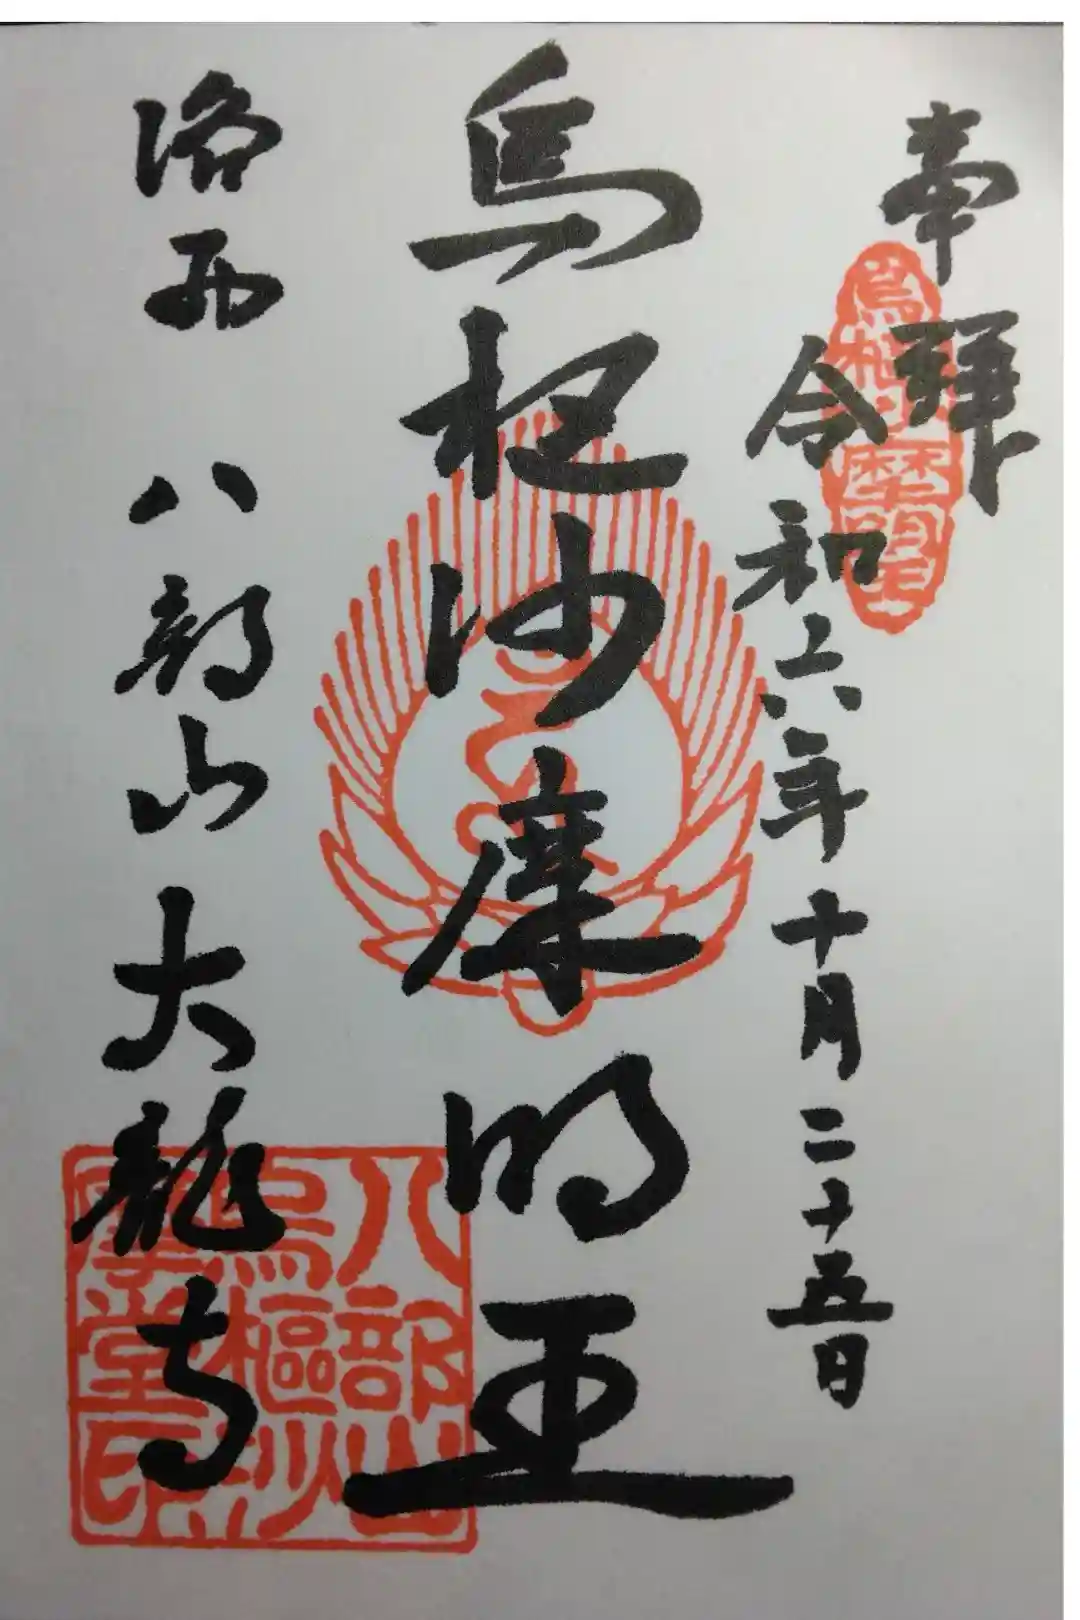 奉拝
令和六年十月二十五日
烏枢沙摩明王
洛西 八部山 大龍寺
烏枢沙摩明王
八部山
烏樞沙
摩堂印